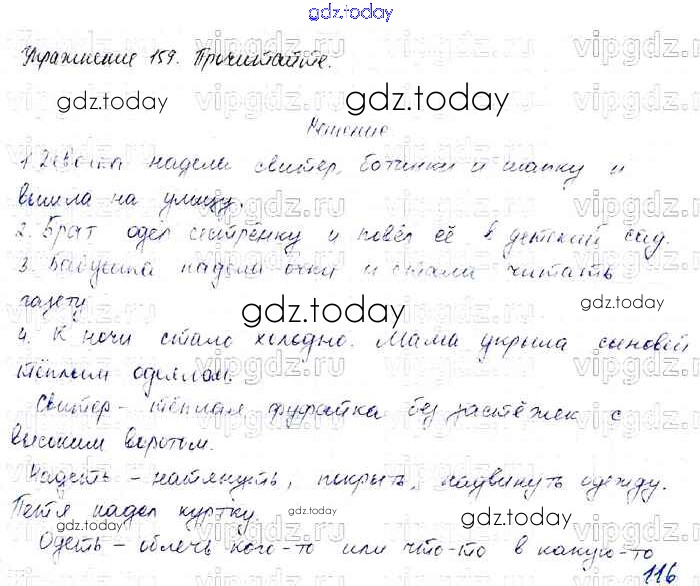 gdz.today
Упражнение 159. Прочитайте.
gdz.today gdz.today
Решение
1. Девочка надела свитер, ботинки и шапку и
вышла на улицу.
2. Брат одел сестрёнку и повёл её в детский сад.
3. Бабушка надела очки и стала читать
газету.
gdz.today gdz.today
4. К ночи стало холодно. Мама укрыла сыновей
тёплым одеялом.
Свитер - тёплая фуфайка без застёжек с
высоким воротом.
Надеть - натянуть, покрыть, надвинуть одежду.
Петя надел куртку.
gdz.today gdz.today gdz.today
Одеть - облечь кого-то или что-то в какую-то
116